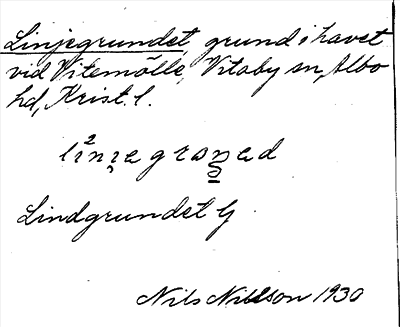 Linjegrundet, grund i havet
vid Vitemölle, Vitaby sn, Albo
hd, Krist. l.
Lindgrundet
Nils Nilsson 1930